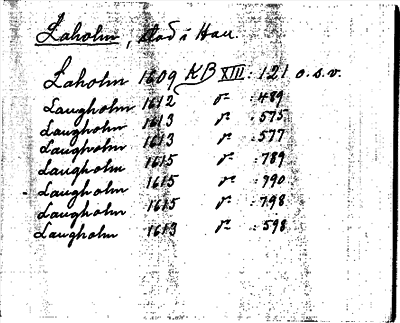 Laholm, stad i Hall.
Laholm 1609 KB XIII: 121 o.s.v.
Laugholm 1612 d:o :489
Laugholm 1613 d:o :575
Laugholm 1613 d:o :577
Laugholm 1615 d:o :789
Laugholm 1615 d:o :790
Laugholm 1615 d:o :798
Laugholm 1613 d:o :598